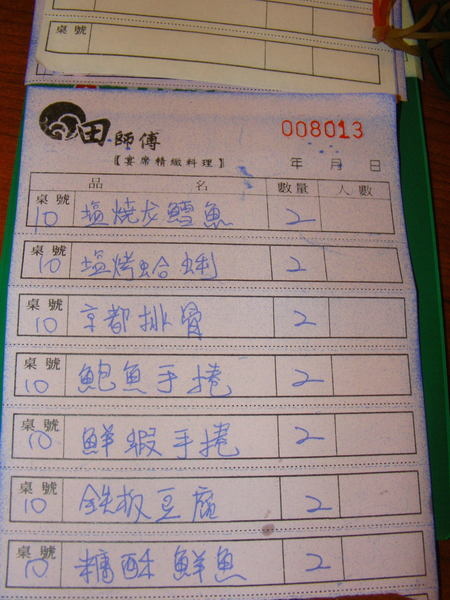 桌號
田師傅
008013
【宴席精緻料理】
年 月 日
品 名 數量 人數
桌號 10 塩燒龙鱈魚 2
桌號 10 塩烤蛤蜊 2
桌號 10 京都排骨 2
桌號 10 鮑魚手捲 2
桌號 10 鮮蝦手捲 2
桌號 10 鉄板豆腐 2
桌號 10 糖酥鮮魚 2